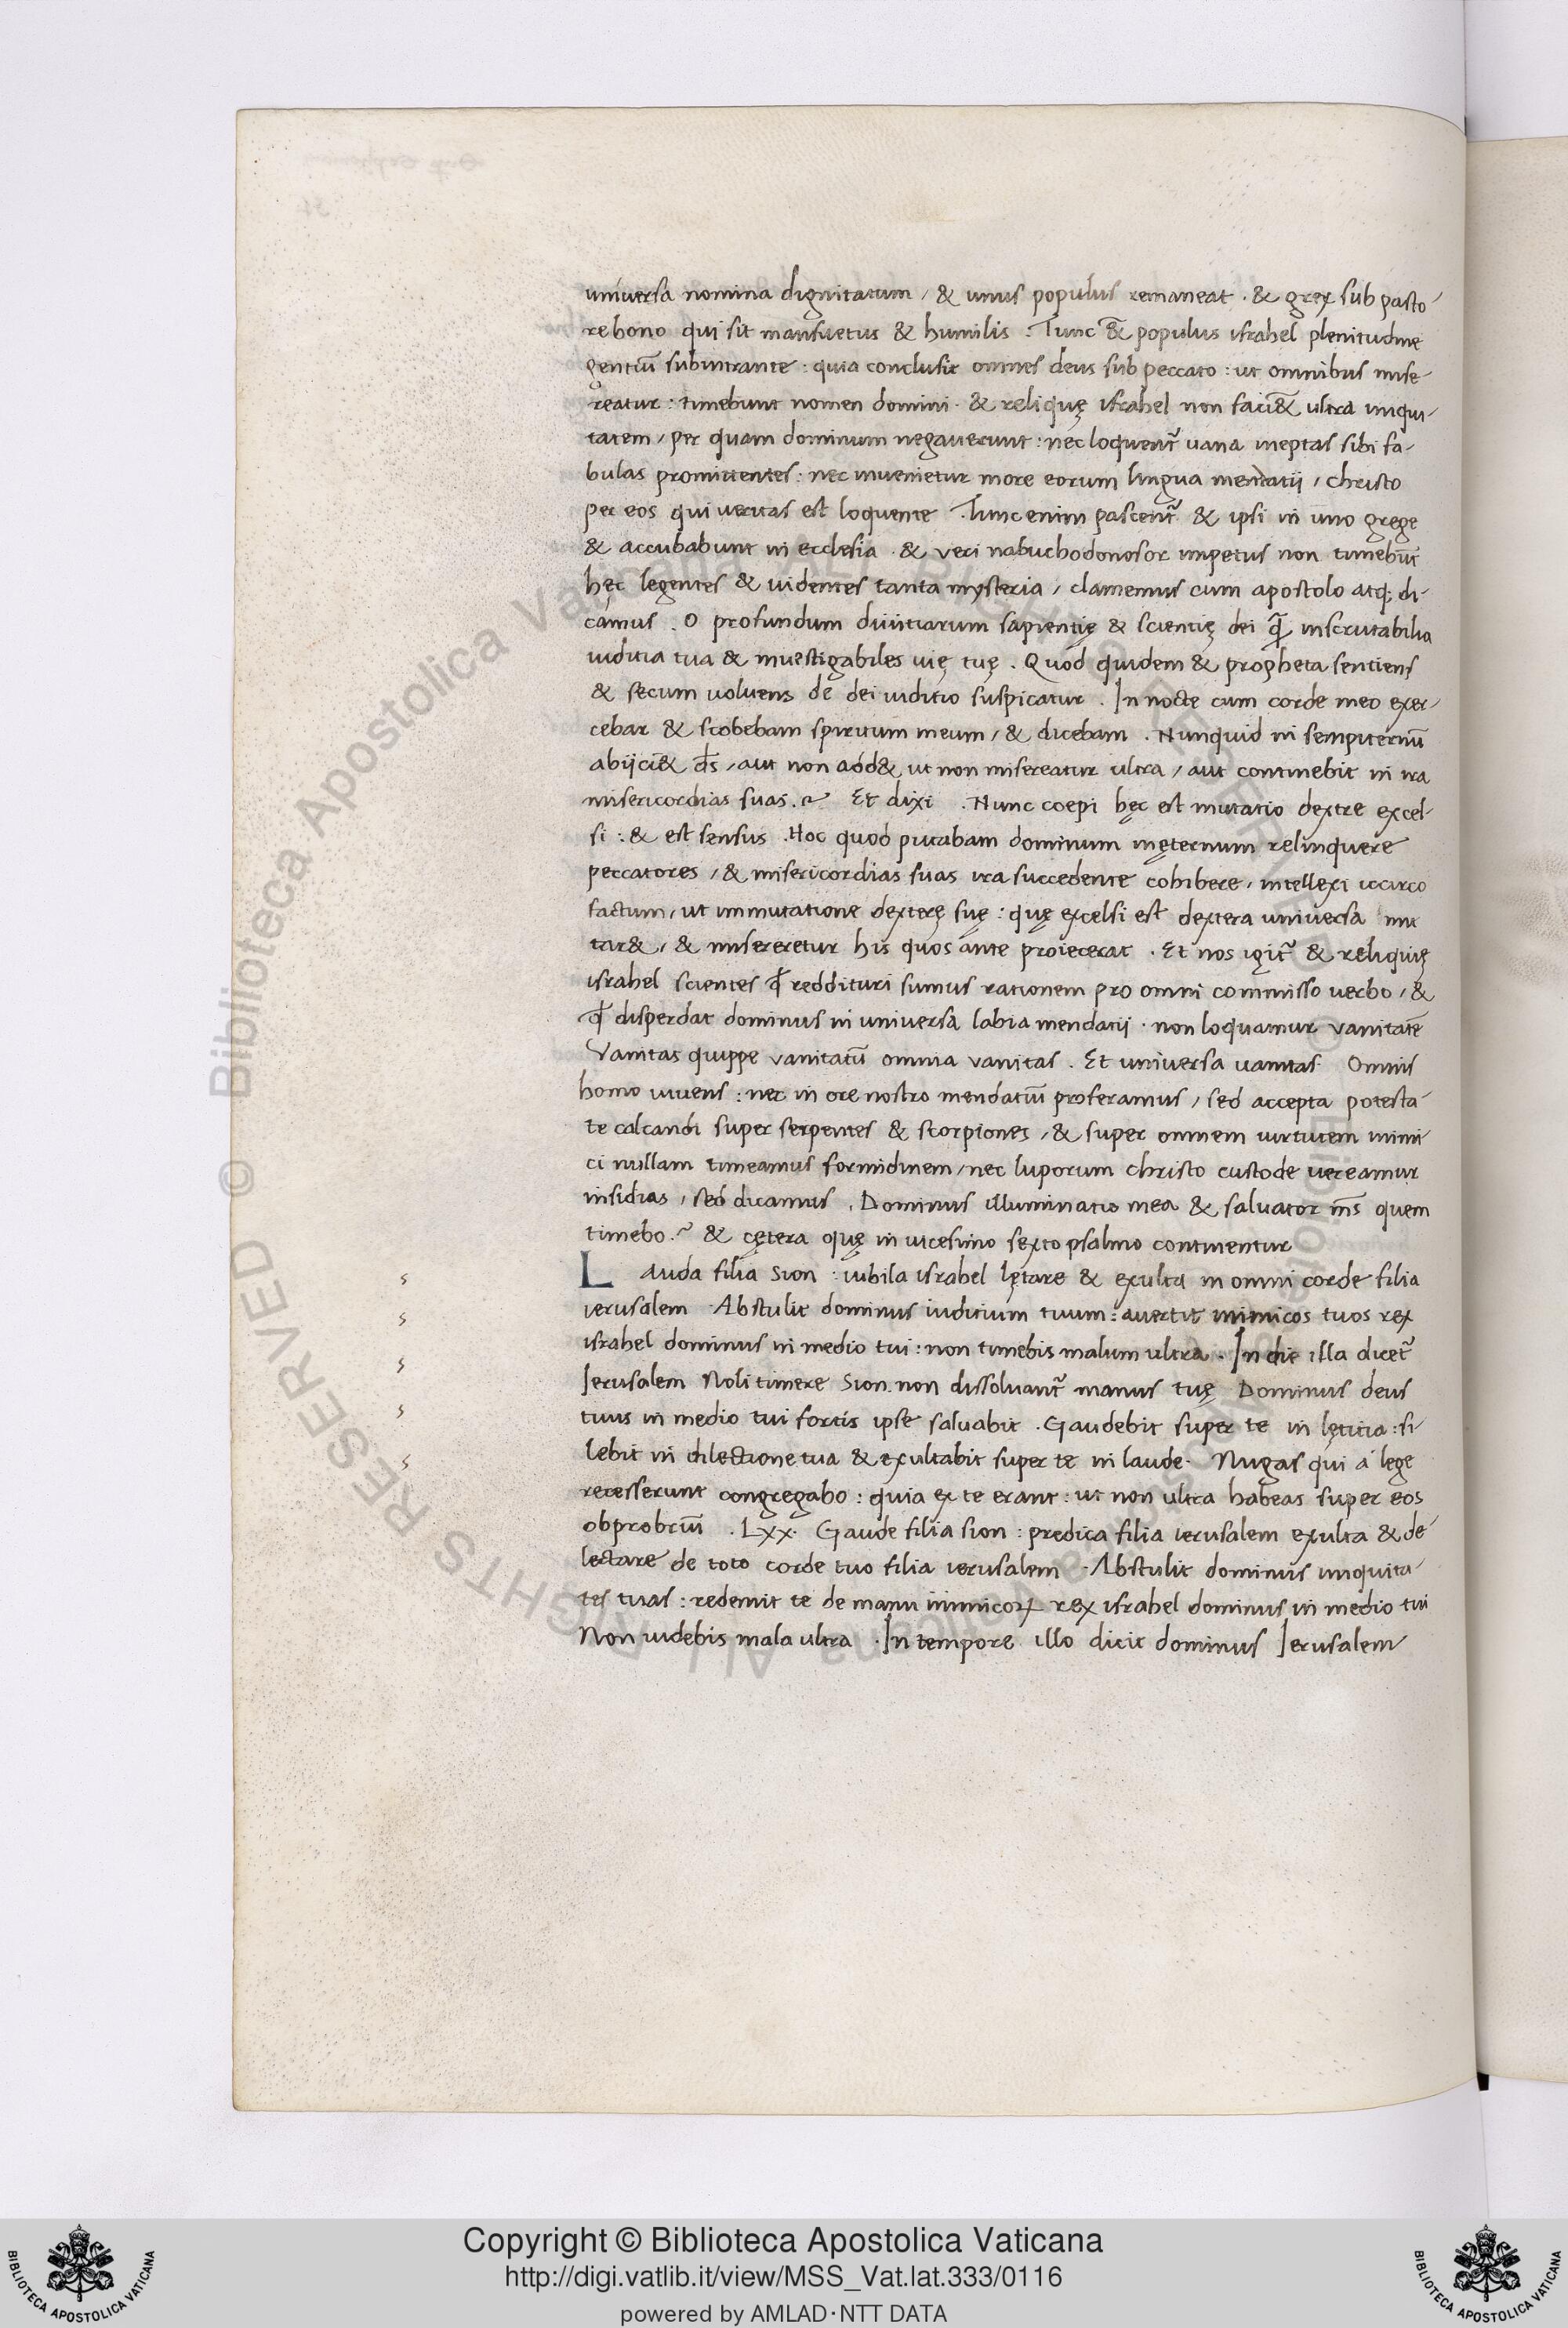 universa nomina dignitatum, & unus populus remaneat. & grex sub pasto-
re bono qui sit mansuetus & humilis. Tunc &̃ populus israhel plenitudine
gentiũ subintrante: quia conclusit omnes deus sub peccato: ut omnibus mise-
reatur: timebunt nomen domini. & reliquę israhel non faci&̃ ultra iniqui-
tatem, per quam dominum negauerunt: nec loquent᷑ uana ineptas sibi fa-
bulas promittentes: nec inuenietur more eorum lingua mendatij, christo
per eos qui ueritas est loquente. Tunc enim pascent᷑ & ipsi in uno grege
& accubabunt in ecclesia. & veri nabuchodonosor impetus non timebũt
hęc legentes & uidentes tanta mysteria, clamemus cum apostolo atq; di-
camus. O profundum diuitiarum sapientię & scientię dei q̃ inscrutabilia
iuditia tua & inuestigabiles uię tuę. Quod quidem & propheta sentiens
& secum uoluens de dei iuditio suspicatur. In nocte cum corde meo exer-
cebar & scobebam spiritum meum, & dicebam. Nunquid in sempiternũ
abijci&̃ d̃s, aut non add& ut non misereatur ultra, aut continebit in ira
misericordias suas.? Et dixi. Nunc coepi hęc est mutatio dextre excel-
si: & est sensus. Hoc quod putabam dominum inęternum relinquere
peccatores, & misericordias suas ira succedente cohibere, intellexi iccirco
factum, ut immutatione dexterę suę: quę excelsi est dextera universa mu
tar&, & misereretur his quos ante proiecerat. Et nos igit᷑ & reliquię
israhel scientes ꝙ reddituri sumus rationem pro omni commisso uerbo, &
ꝙ disperdat dominus in universa labia mendatij. non loquamur vanitatẽ
Vanitas quippe vanitatũ omnia vanitas. Et universa uanitas. Omnis
homo uiuens: nec in ore nostro mendatiũ proferamus, sed accepta potesta-
te calcandi super serpentes & scorpiones, & super omnem uirtutem inimi-
ci nullam timeamus formidinem, nec luporum christo custode vereamur
insidias, sed dicamus. Dominus illuminatio mea & saluator m̃s quem
timebo.? & cętera quę in uicesimo sexto psalmo continentur
Lauda filia sion: iubila israhel lętare & exulta in omni corde filia
ierusalem. Abstulit dominus iuditium tuum: auertit inimicos tuos rex
israhel dominus in medio tui: non timebis malum ultra. In die illa dicet᷑
Ierusalem Noli timere Sion. non dissoluant᷑ manus tuę Dominus deus
tuus in medio tui fortis ipse saluabit. Gaudebit super te in lętitia: si-
lebit in dilectione tua & exultabit super te in laude. Nugas qui a lege
recesserunt congregabo: quia ex te erant: ut non ultra habeas super eos
obprobriũ. Lxx. Gaude filia sion: predica filia ierusalem exulta & de-
lectare de toto corde tuo filia ierusalem. Abstulit dominus iniquita-
tes tuas: redemit te de manu inimicoꝝ rex israhel dominus in medio tui
Non uidebis mala ultra. In tempore illo dicit dominus Ierusalem
Copyright © Biblioteca Apostolica Vaticana
http://digi.vatlib.it/view/MSS_Vat.lat.333/0116
powered by AMLAD·NTT DATA
BIBLIOTECA APOSTOLICA VATICANA
BIBLIOTECA APOSTOLICA VATICANA